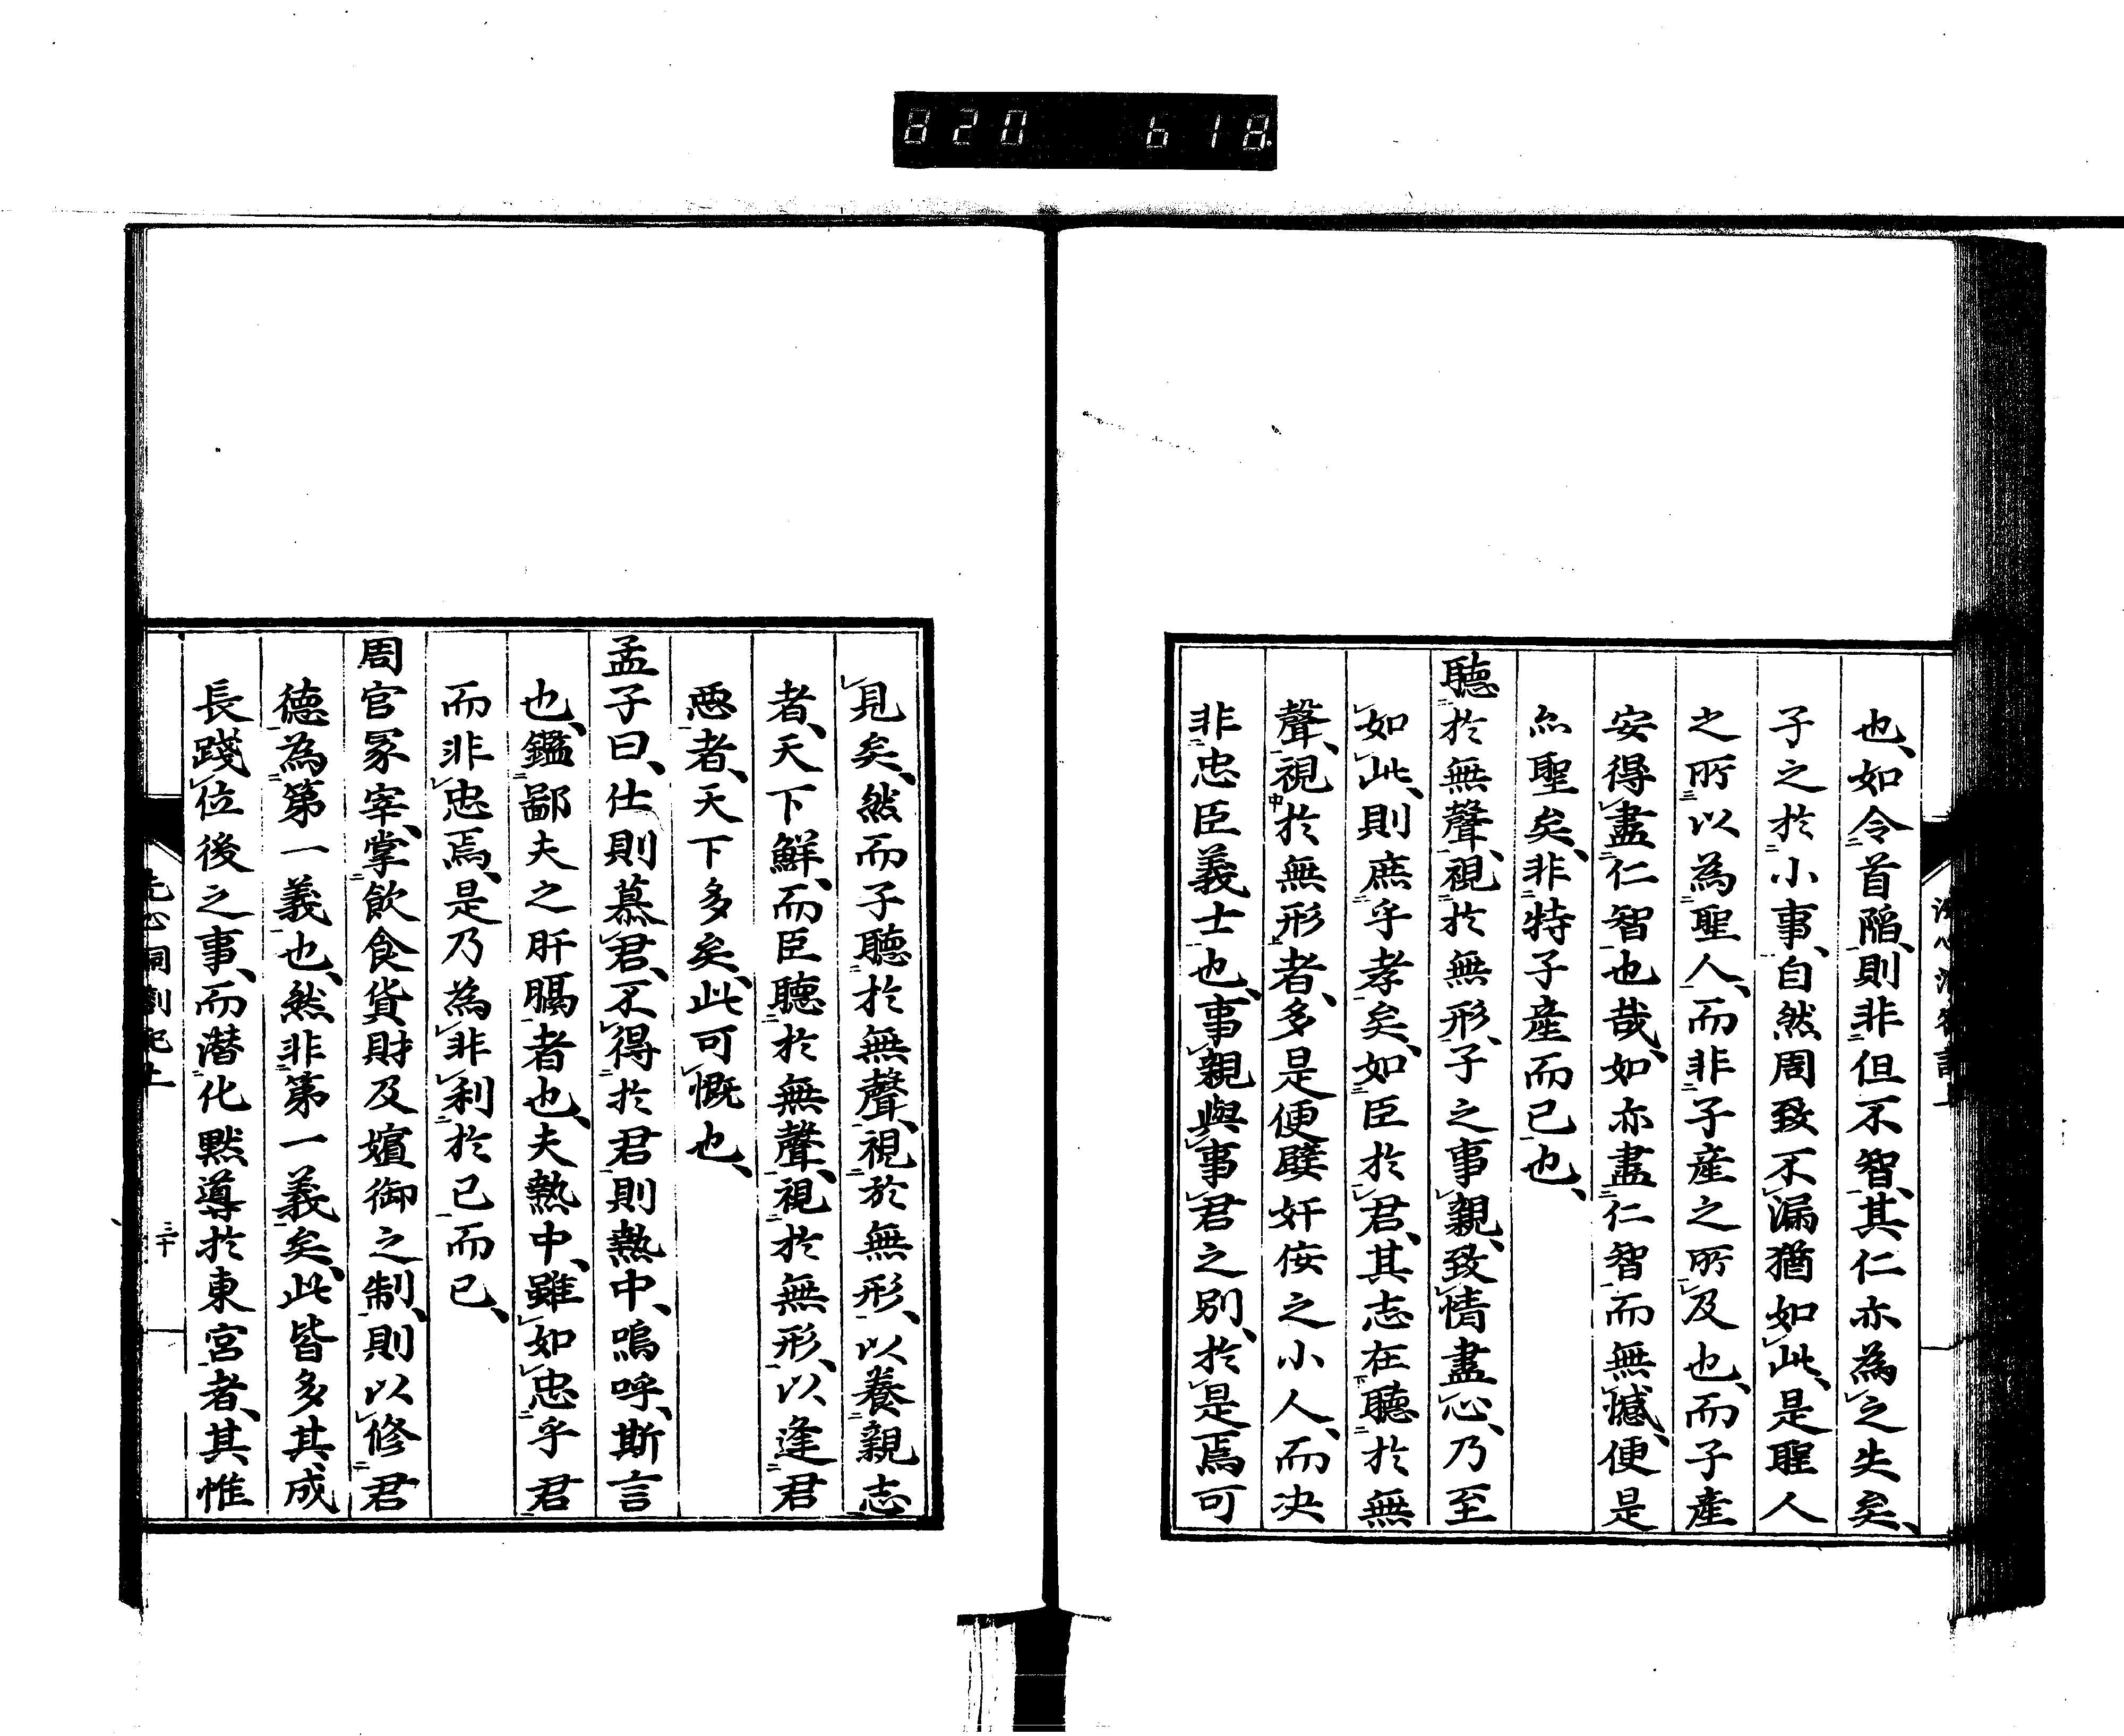 820 618
也、如令首陷、則非但不智、其仁亦為之失矣、
子之於小事、自然周致不漏猶如此、是聖人
之所以為聖人、而非子產之所及也、而子產
安得盡仁智也哉、如亦盡仁智而無憾、便是
亦聖矣、非特子產而已也、
聽於無聲、視於無形、子之事親、致情盡心、乃至
如此、則庶乎孝矣、如臣於君、其志在聽於無
聲、視於無形者、多是便嬖奸佞之小人、而决
非忠臣義士也、事親與事君之別、於是焉可
見矣、然而子聽於無聲、視於無形、以養親志
者、天下鮮、而臣聽於無聲、視於無形、以逢君
惡者、天下多矣、此可慨也、
孟子曰、仕則慕君、不得於君則熱中、嗚呼、斯言
也、鑑鄙夫之肝膈者也、夫熱中、雖如忠乎君
而非忠焉、是乃為非利於己而已、
周官冢宰、掌飲食貨財及嬪御之制、則以修君
德為第一義也、然非第一義矣、此皆多其成
長踐位後之事、而潛化默導於東宮者、其惟
洗心洞劄記上
三十